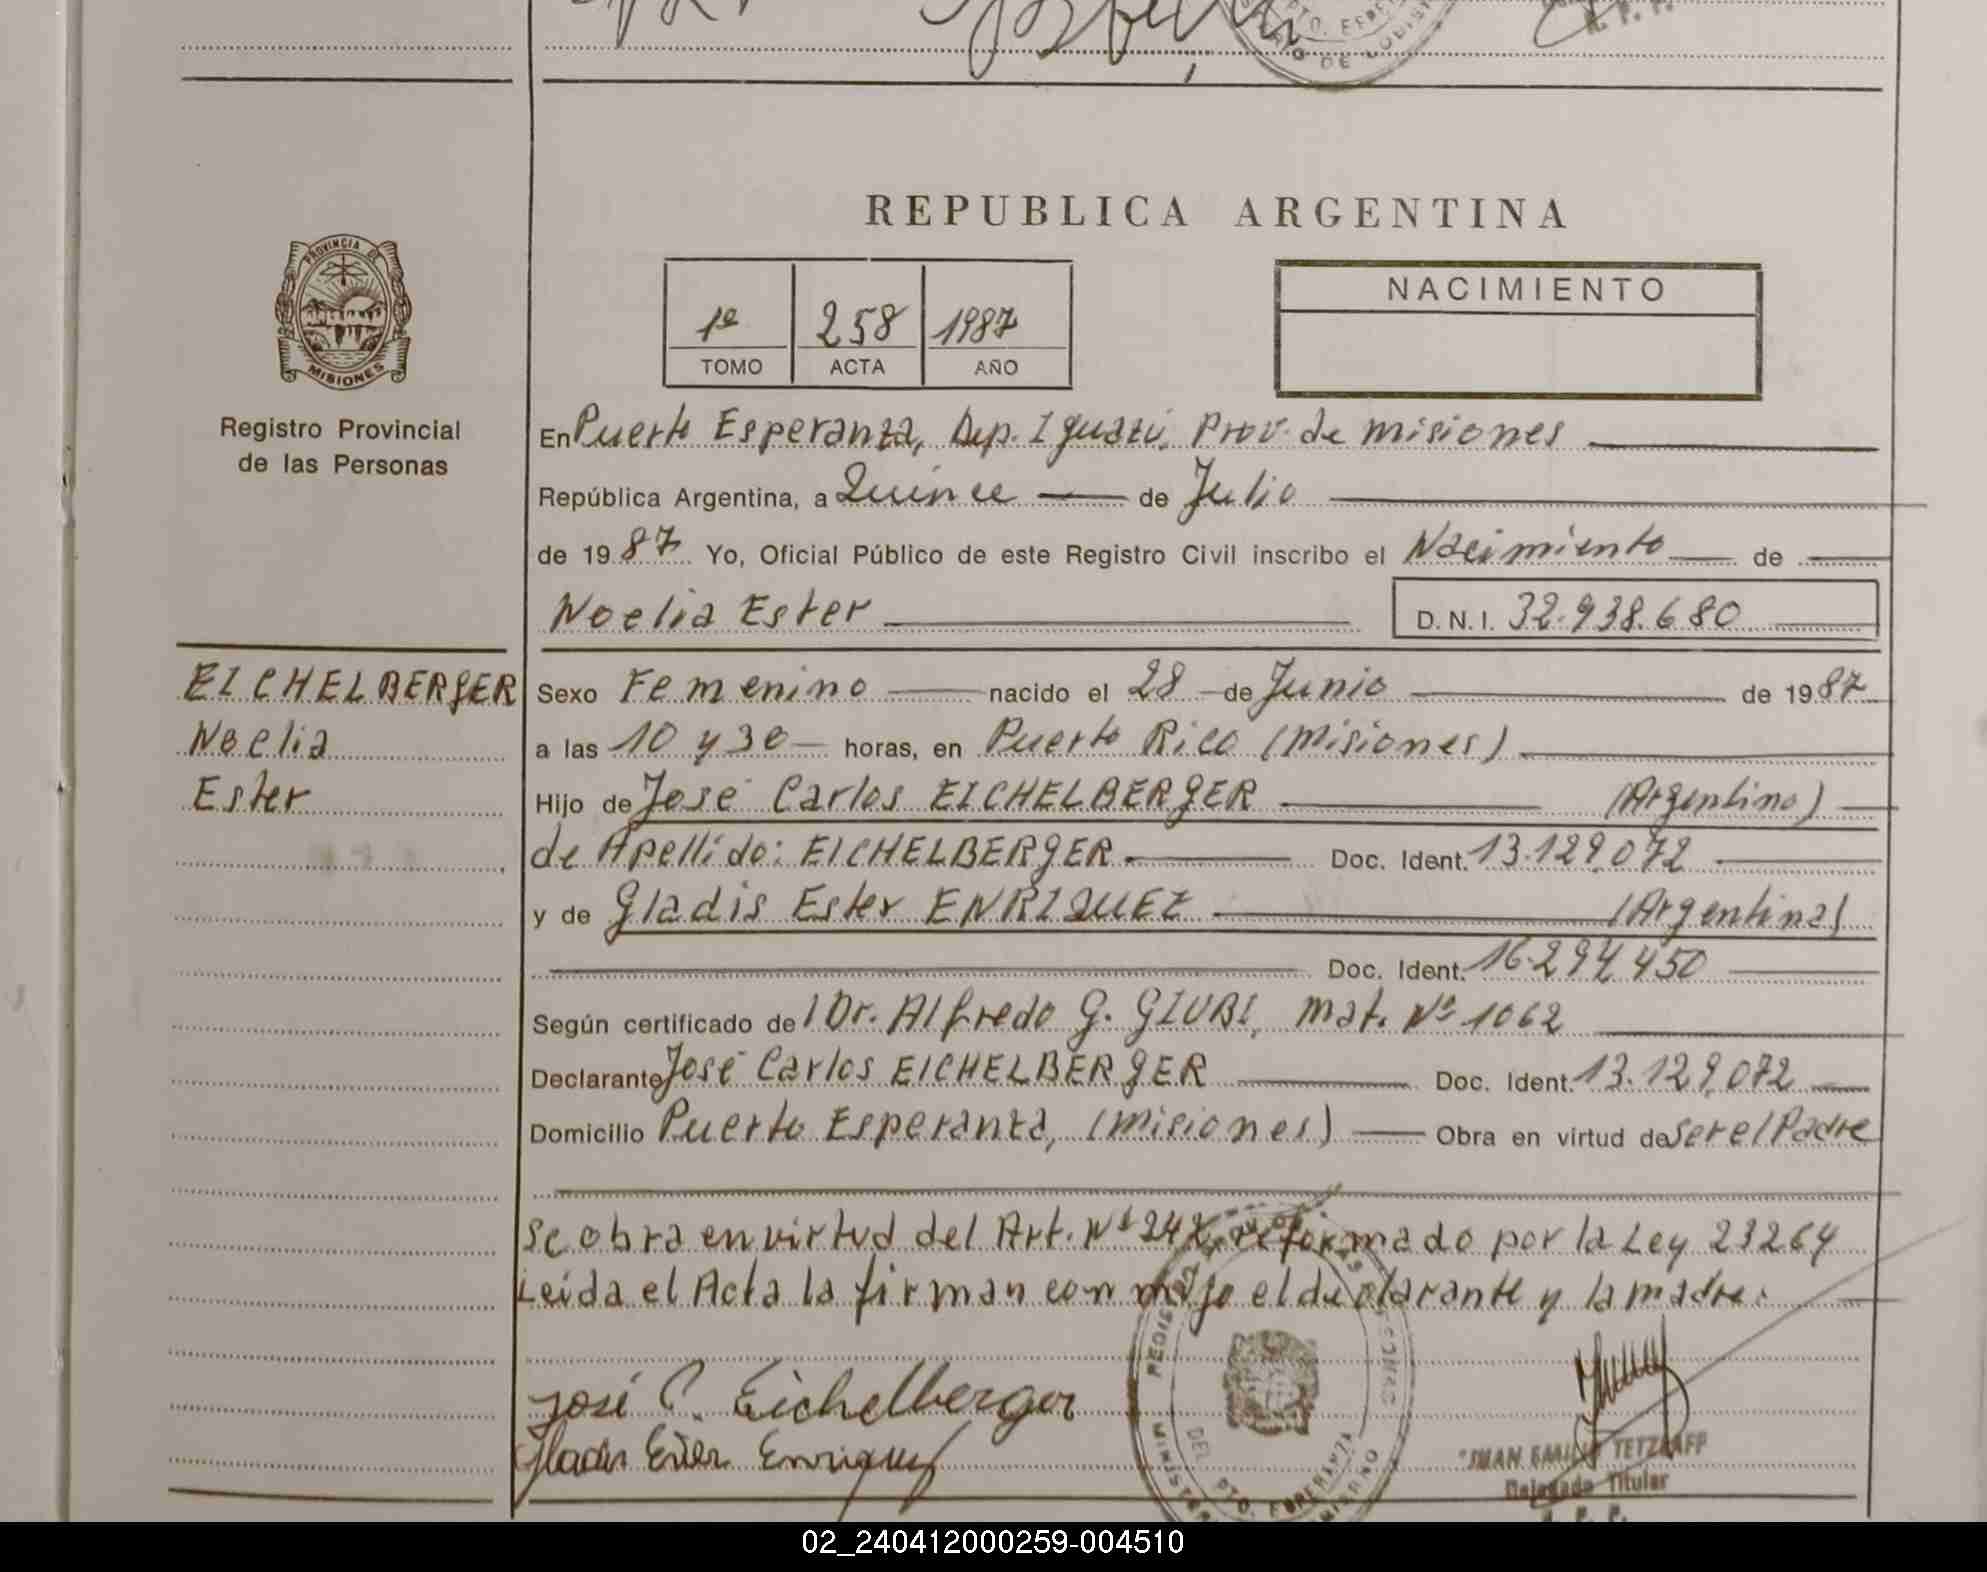 REPUBLICA ARGENTINA
PROVINCIA DE
MISIONES
Registro Provincial
de las Personas
1º 258 1987
TOMO ACTA AÑO
NACIMIENTO
En Puerto Esperanza, Dep. Iguazú, Prov. de Misiones
República Argentina, a Quince de Julio
de 1987 Yo, Oficial Público de este Registro Civil inscribo el Nacimiento de
Noelia Ester D.N.I. 32.938.680
EICHELBERGER
Noelia
Ester
Sexo Femenino nacido el 28 de Junio de 1987
a las 10 y 30 horas, en Puerto Rico (Misiones)
Hijo de José Carlos EICHELBERGER (Argentino)
de Apellido: EICHELBERGER. Doc. Ident. 13.129.072
y de Gladis Ester ENRIQUEZ (Argentina)
Doc. Ident. 16.294.450
Según certificado del Dr. Alfredo G. GIUBI, Mat. Nº 1062
Declarante José Carlos EICHELBERGER Doc. Ident. 13.129.072
Domicilio Puerto Esperanza, (Misiones) Obra en virtud de ser el Padre
Se obra en virtud del Art. Nº 242, reformado por la Ley 23264
Leída el Acta la firman conmigo el declarante y la madre.
José C. Eichelberger
Gladis Ester Enriquez
JUAN EMILIO TETZLAFF
Delegado Titular
02_240412000259-004510